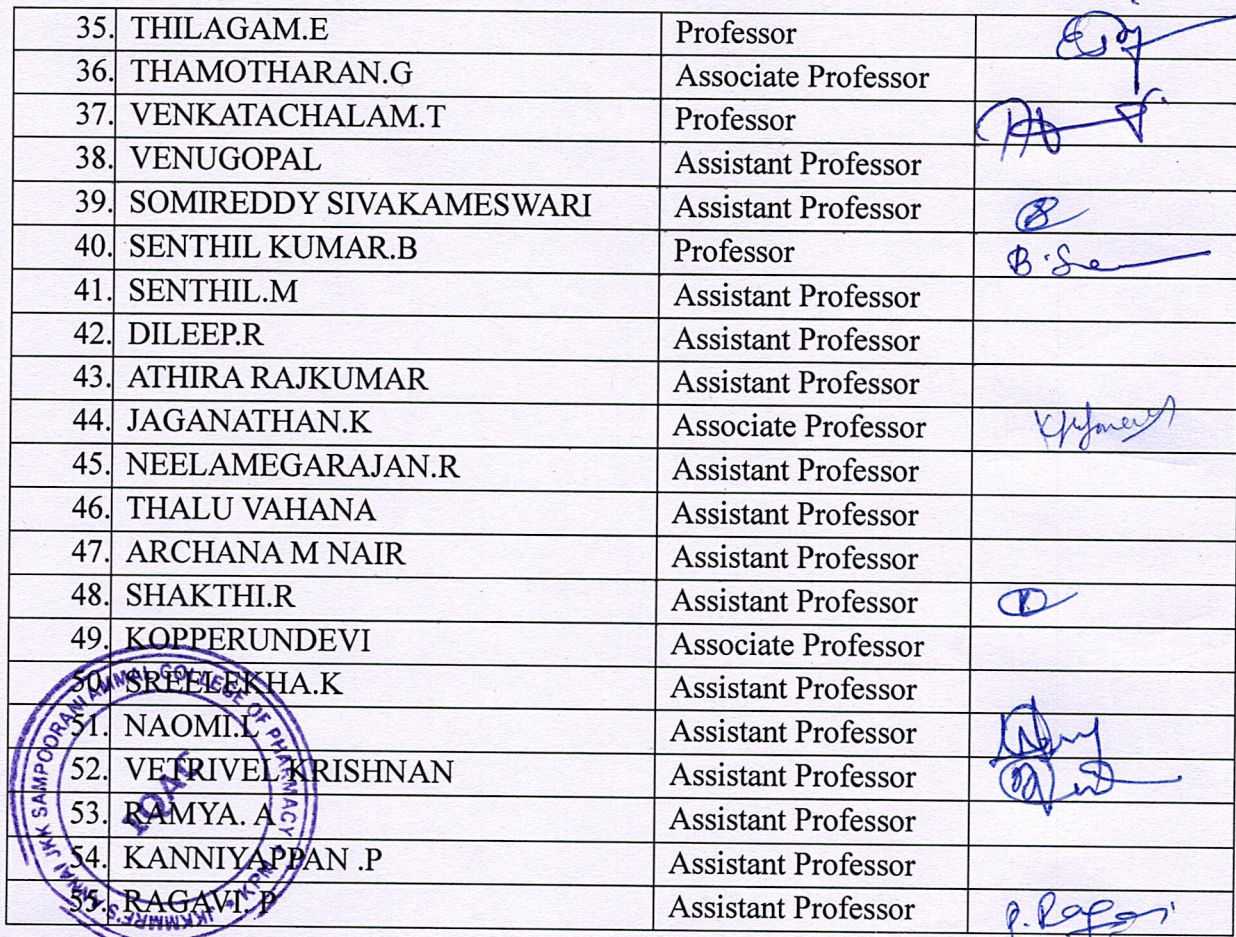 35. THILAGAM.E Professor
36. THAMOTHARAN.G Associate Professor
37. VENKATACHALAM.T Professor
38. VENUGOPAL Assistant Professor
39. SOMIREDDY SIVAKAMESWARI Assistant Professor
40. SENTHIL KUMAR.B Professor
41. SENTHIL.M Assistant Professor
42. DILEEP.R Assistant Professor
43. ATHIRA RAJKUMAR Assistant Professor
44. JAGANATHAN.K Associate Professor
45. NEELAMEGARAJAN.R Assistant Professor
46. THALU VAHANA Assistant Professor
47. ARCHANA M NAIR Assistant Professor
48. SHAKTHI.R Assistant Professor
49. KOPPERUNDEVI Associate Professor
50. SREELEKHA.K Assistant Professor
51. NAOMI.L Assistant Professor
52. VETRIVEL KRISHNAN Assistant Professor
53. RAMYA. A Assistant Professor
54. KANNIYAPPAN .P Assistant Professor
55. RAGAVI. P Assistant Professor P. Ragavi
JKKMMRF'S ANNAI JKK SAMPOORANI AMMAL COLLEGE OF PHARMACY
IQAC